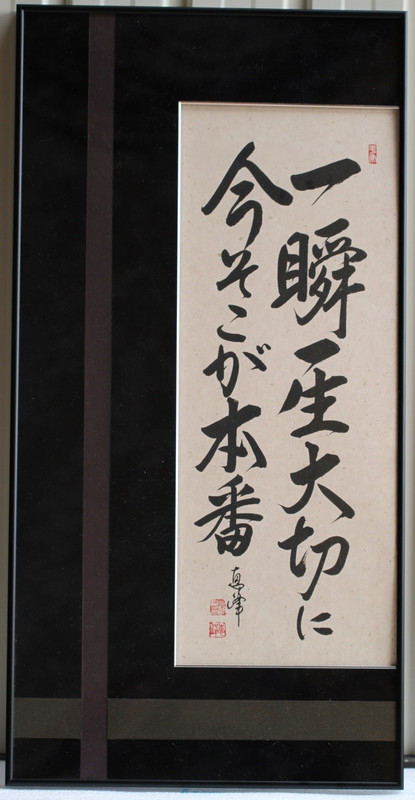 一瞬一生大切に
今そこが本番
恵峰